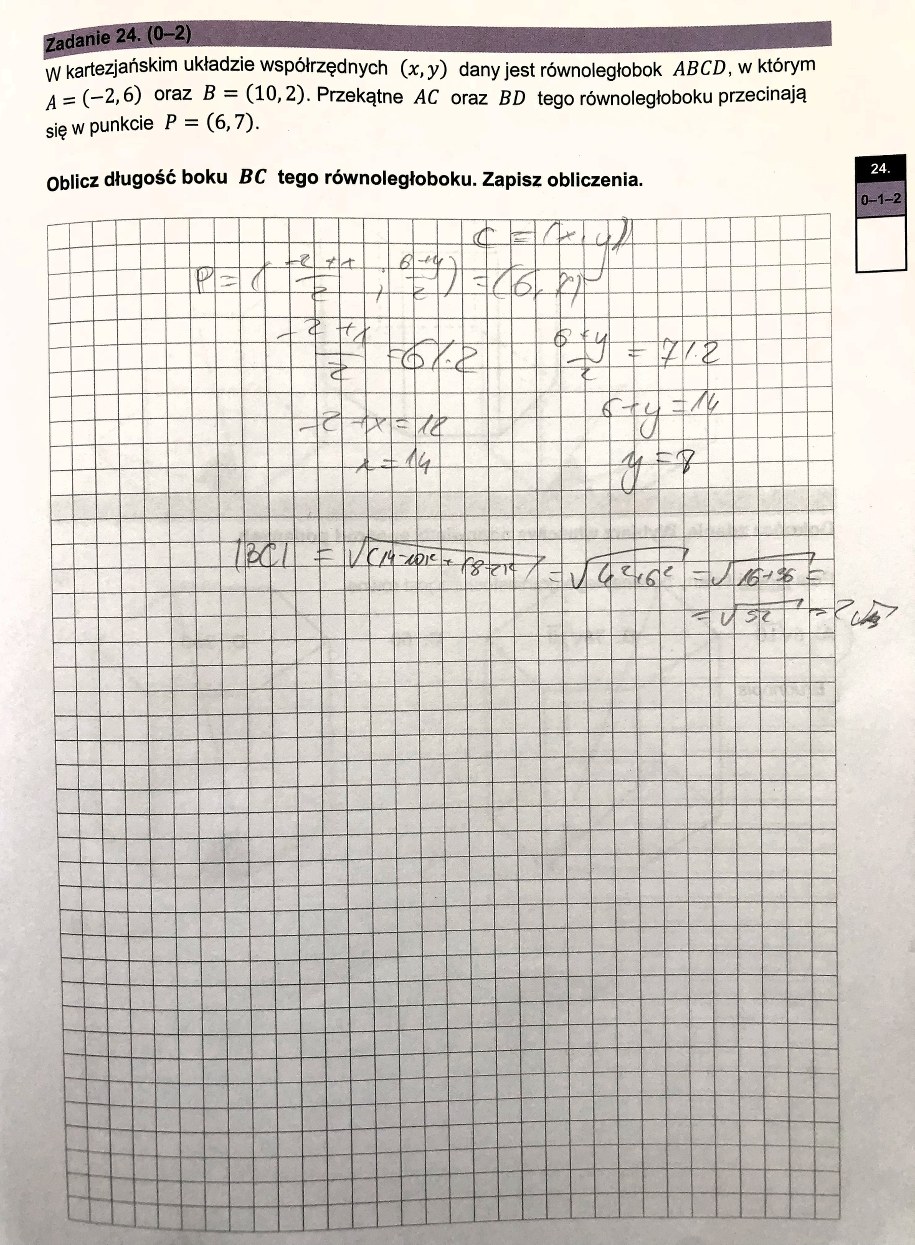 Zadanie 24. (0–2)
W kartezjańskim układzie współrzędnych (x, y) dany jest równoległobok ABCD, w którym
A = (−2, 6) oraz B = (10, 2). Przekątne AC oraz BD tego równoległoboku przecinają
się w punkcie P = (6, 7).
Oblicz długość boku BC tego równoległoboku. Zapisz obliczenia.
24.
0–1–2
C = (x, y)
P = (\frac{-2+x}{2} ; \frac{6+y}{2}) = (6, 7)
\frac{-2+x}{2} = 6 /·2    \frac{6+y}{2} = 7 /·2
-2+x = 12    6+y = 14
x = 14    y = 8
|BC| = √((14-10)²+(8-2)²) = √(4²+6²) = √(16+36) =
= √52 = 2√13